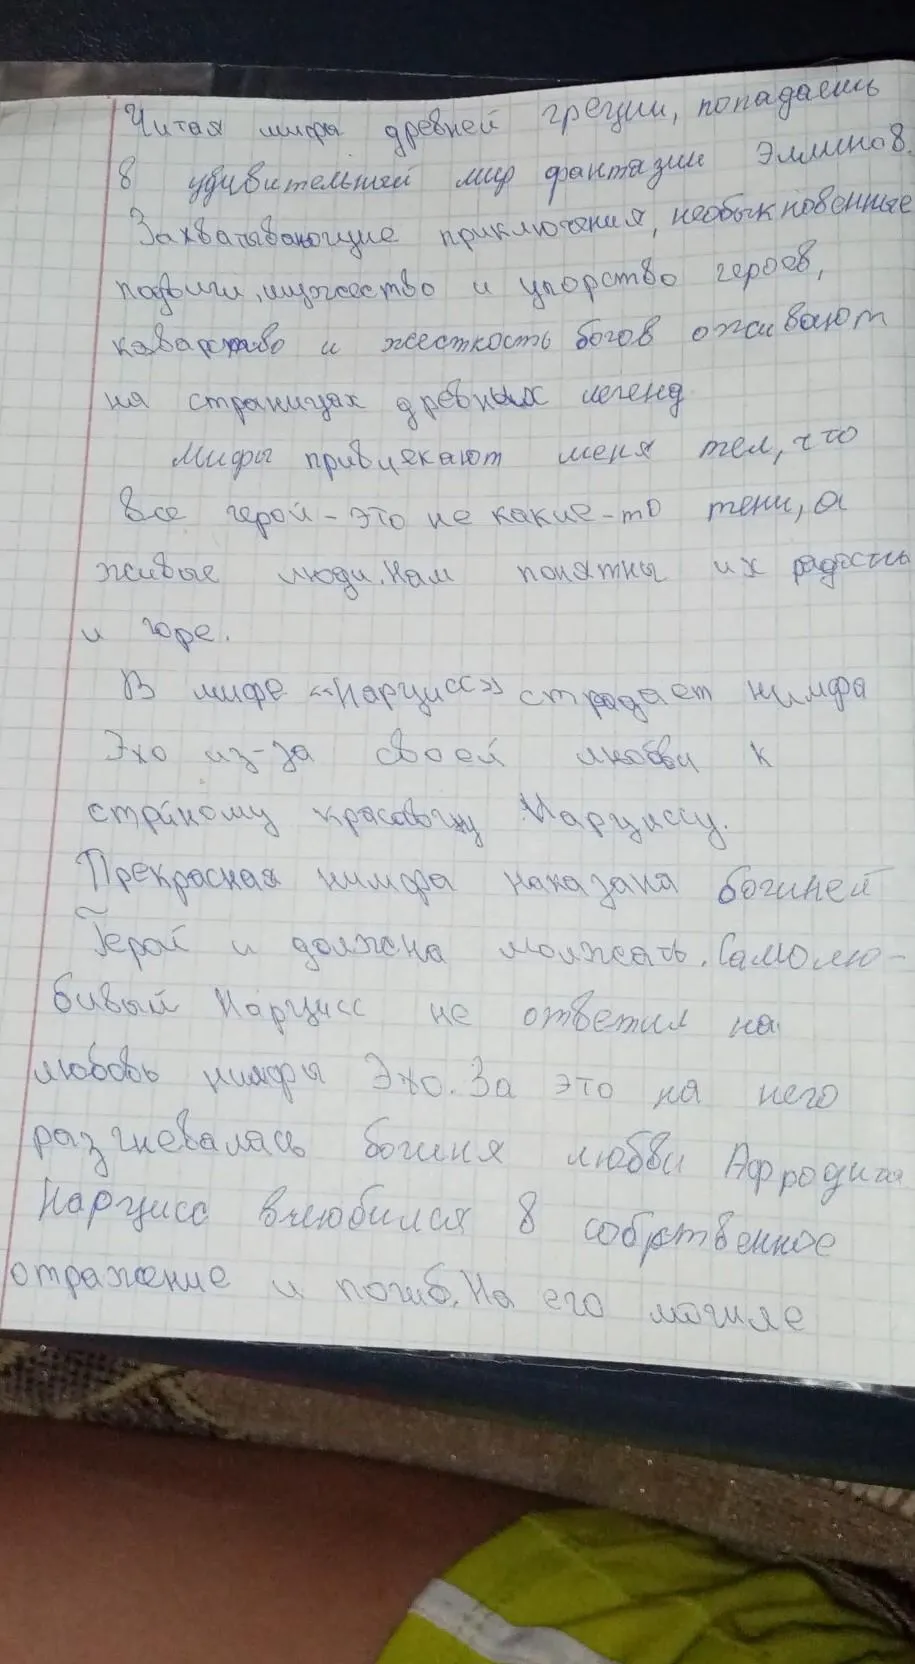 Читая мифы древней греции, попадаешь
в удивительный мир фантазии Эллинов.
Захватывающие приключения, необыкновенные
подвиги, мужество и упорство героев,
коварство и жесткость богов оживают
на страницах древных легенд
Мифы привлекают меня тем, что
все герои - это не какие-то тени, а
живые люди. Нам понятны их радость
и горе.
В мифе «Нарцисс» страдает нимфа
Эхо из-за своей любви к
стройному красавцу Нарциссу.
Прекрасная нимфа наказана богиней
Герой и должна молжать. Самолю-
бивый Нарцисс не ответил на
любовь нимфы Эхо. За это на него
разгневалась богиня любви Афродита
Нарцисс влюбился в собственное
отражение и погиб. На его могиле